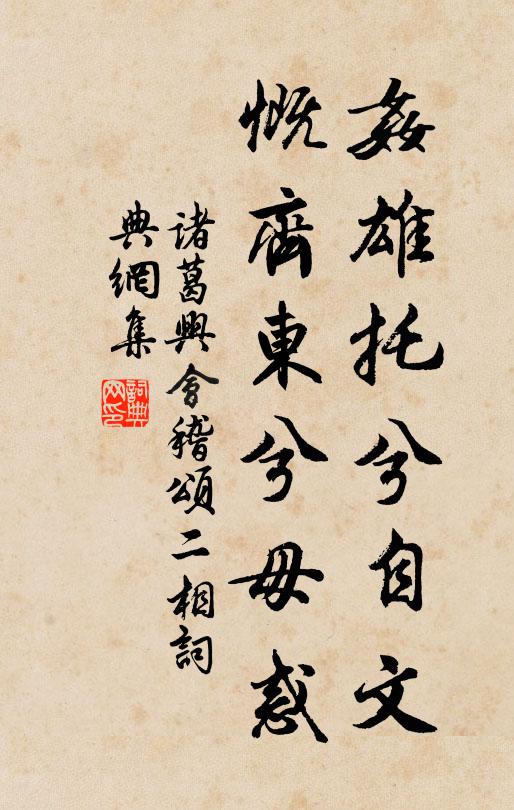 姦雄托兮自文
慨齊東兮毋惑
諸葛興會稽頌二相詞
典網集
詞典网印